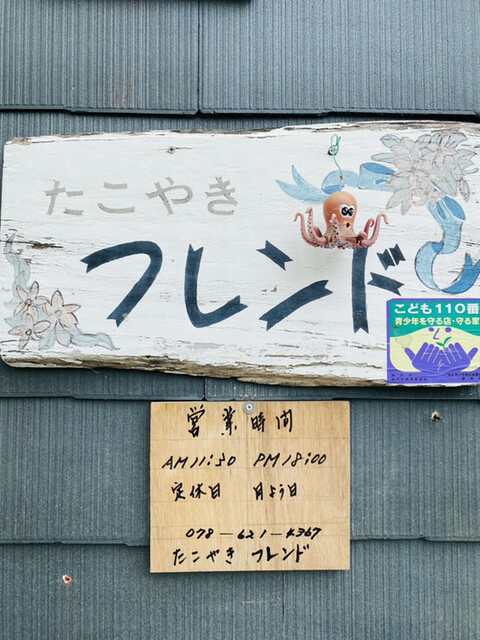 たこやき
フレンド
こども110番
青少年を守る店・守る家
営業時間
AM11:30 PM18:00
定休日 月よう日
078-621-4367
たこやき フレンド